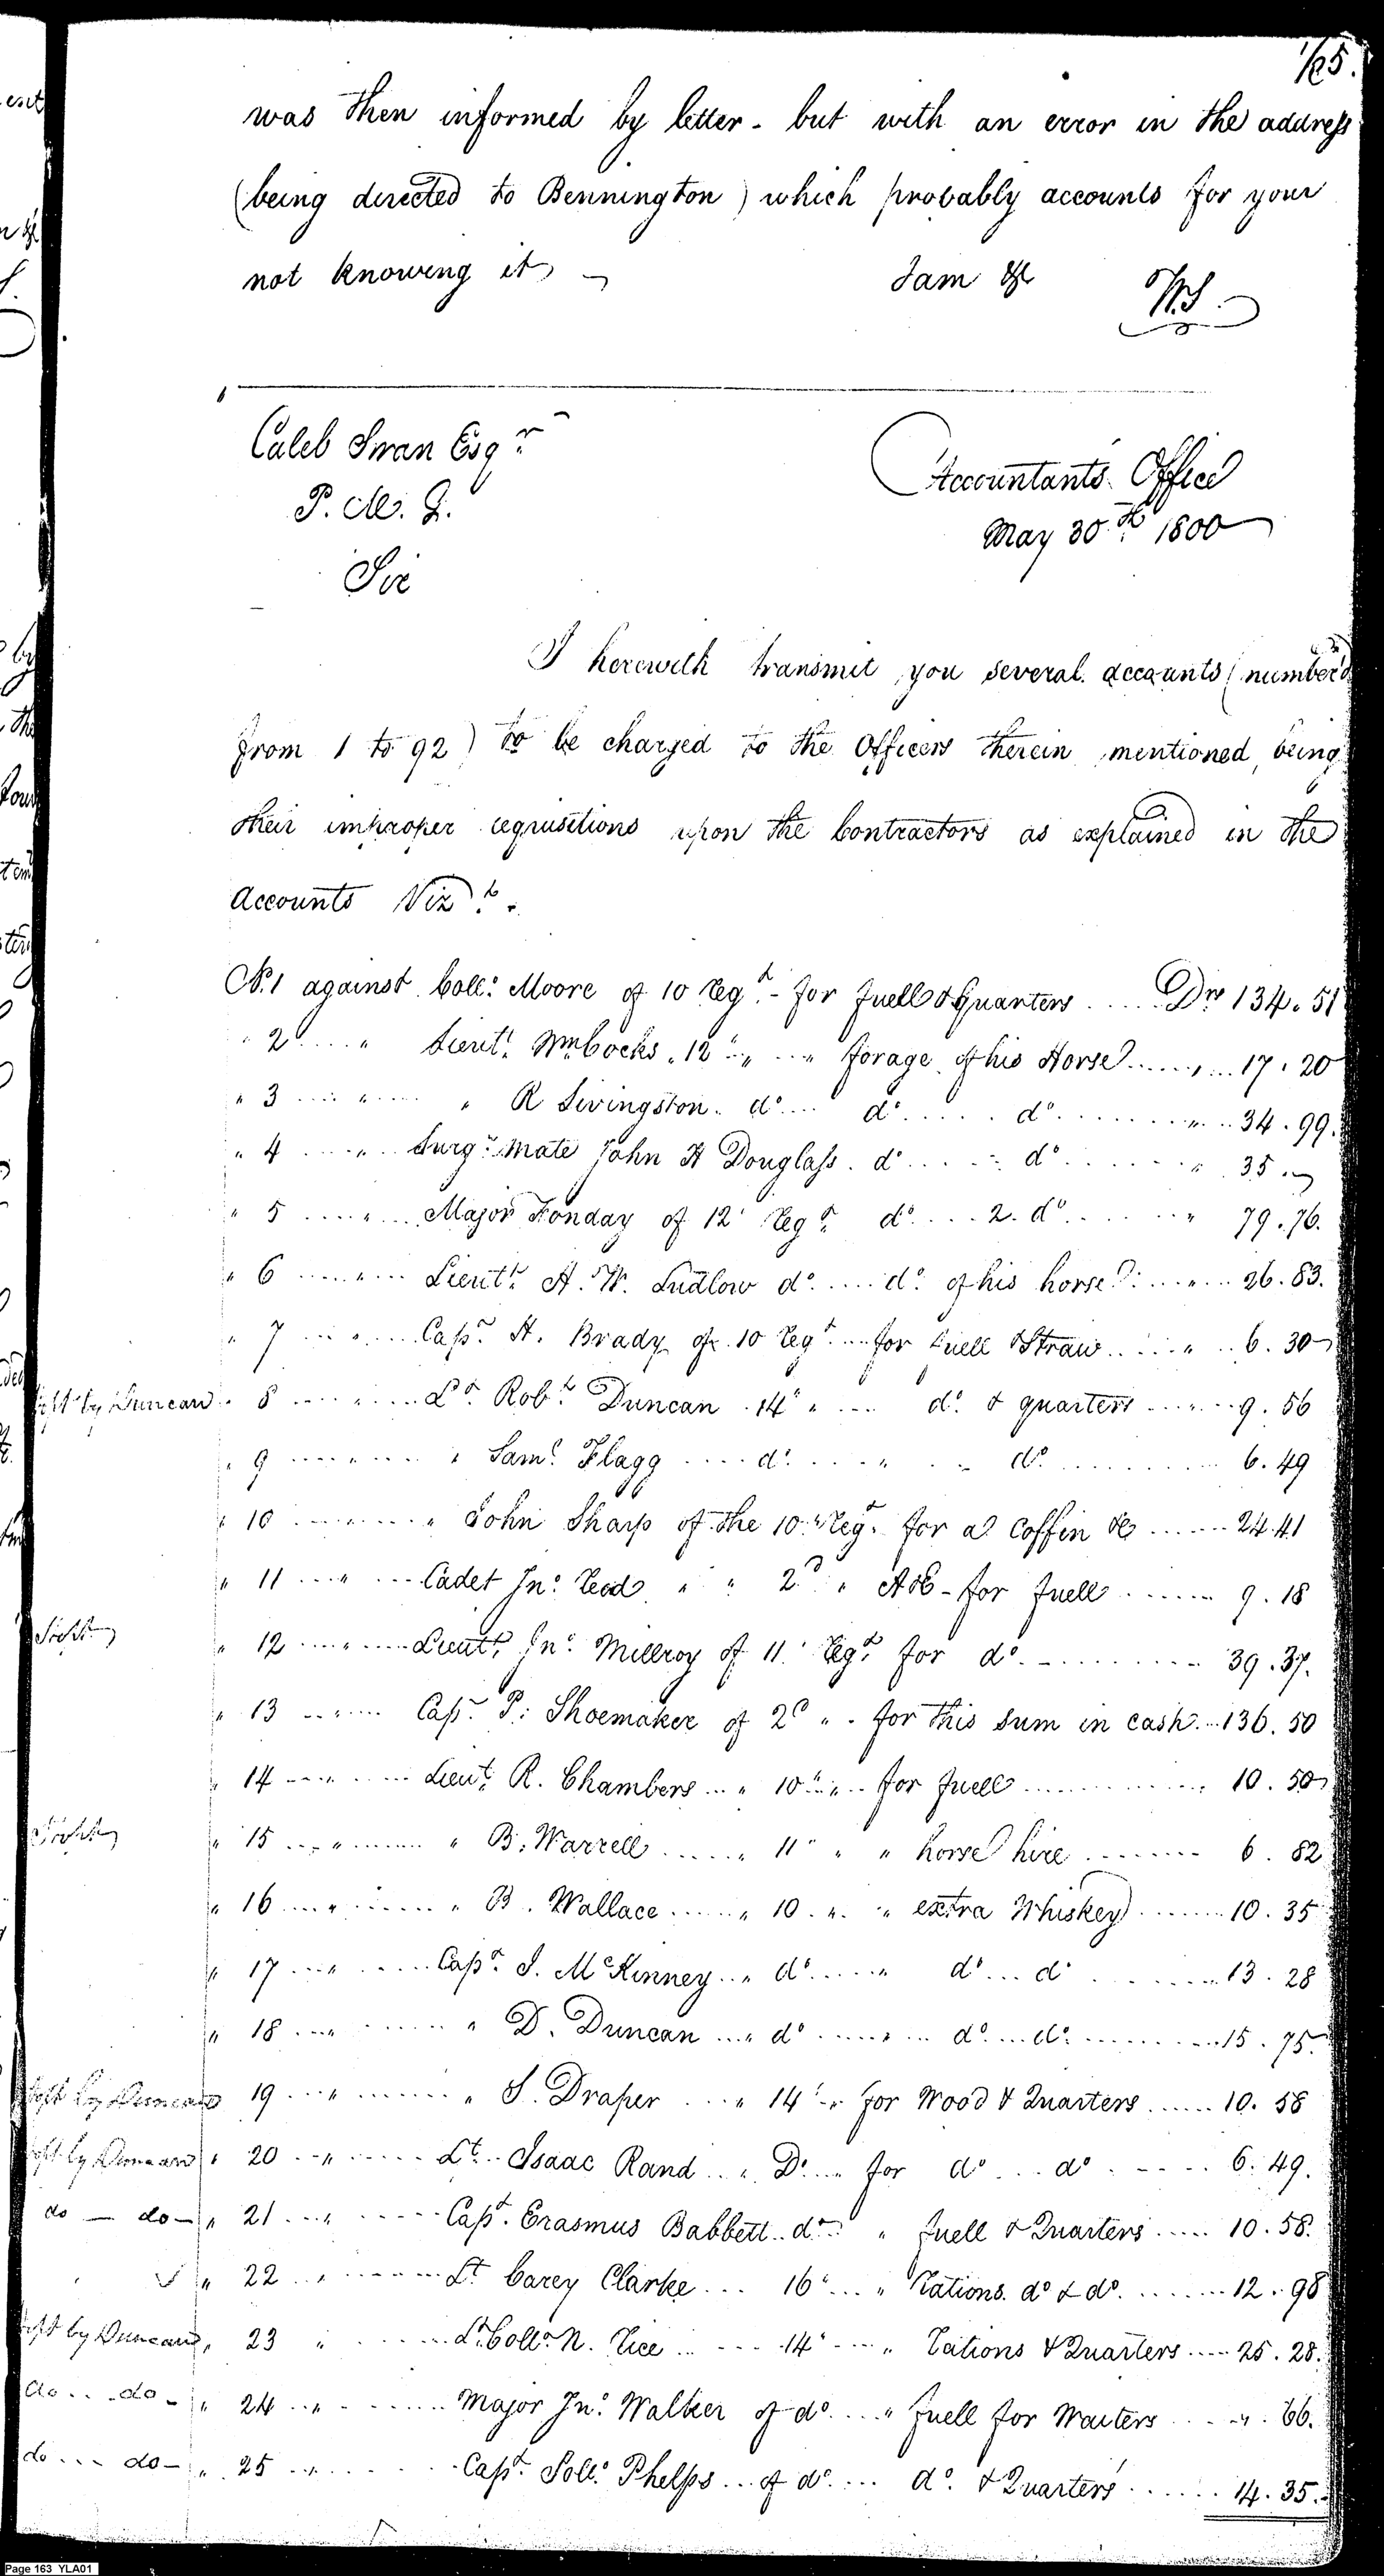 was then informed by letter - but with an error in the address
(being directed to Bennington) which probably accounts for your
not knowing it
I am &c
W.S.
Caleb Swan Esqr
P. M. G.
Accountants Office
May 30th 1800
Sir
I herewith transmit you several accounts (number'd
from 1 to 92) to be charged to the Officers therein mentioned, being
their improper requisitions upon the Contractors as explained in the
accounts Vizt.
No. 1 against Coll: Moore of 10 Regt - for fuell & Quarters .... Drs 134. 51
" 2 .... " Lieutt Wm Cocks " 12 " " ... " forage of his Horse ..... " ... 17. 20
" 3 .... " .... " R Livingston. do .... do ..... do ....... " .. 34. 99.
" 4 .... " .. Surgn Mate John H Douglass. do .... do ...... " 35. "
" 5 .... " ... Major Fonday of 12 Regt do .... 2. do ..... " 79. 76.
" 6 .... " ... Lieutt A. W. Ludlow do .... do of his horse ... " ... 26. 83.
" 7 ... " ... Capt H. Brady of 10 Regt ... for fuell & Straw .... " .. 6. 30
by Duncan " 8 .... " .... Lt Robt Duncan 14 " .... do & quarters ... " .. 9. 56
" 9 .... " .... " Saml Flagg .... do .... " .. do ........ 6. 49
" 10 .... " ... " John Sharp of the 10th Regt for a coffin &c ..... 24. 41
" 11 ... " ... Cadet Jno Read " " 2d " A&E - for fuell ...... 9. 18
" 12 .... " ... Lieutt Jno Millroy of 11 Regt for do ........ 39. 37.
" 13 .. " ... Capt P. Shoemaker of 2d " . for this sum in cash ... 136. 50
" 14 .... " ... Lieut R. Chambers .. " 10 " .. for fuell ........ 10. 50
" 15 ... " .... " B. Warrell ..... " 11 " " " horse hire ...... 6. 82
" 16 ... " .... " B. Wallace ..... " 10. " " extra Whiskey ...... 10. 35
" 17 ... " .... Capt J. McKinney .. " do .... " do ... do ...... 13. 28
" 18 ... " .... " D. Duncan ... " do .... " .. do ... do ...... 15. 75.
by Duncan 19 ... " ..... " S. Draper ... " 14 " for Wood & Quarters ..... 10. 58
by Duncan " 20 .. " .... Lt. Isaac Rand .. " Do ... for do ... do ..... 6. 49.
do — do — " 21 ... " .... Capt. Erasmus Babbett .. do " fuell & Quarters .... 10. 58.
" 22 .. " .... Lt Carey Clarke ... 16 ... " Rations. do & do ...... 12. 98
by Duncan " 23 " .... Lt Colln N. Rice ..... 14 .... " Rations & Quarters .... 25. 28.
do ... do - " 24 .. " .... Major Jno Walker of do .... " fuell for Waiters .... " . 66.
do ... do - " 25 .. " .... Capt. Soll: Phelps ... of do .... do. & Quarters ...... 14. 35.
Page 163 YLA01